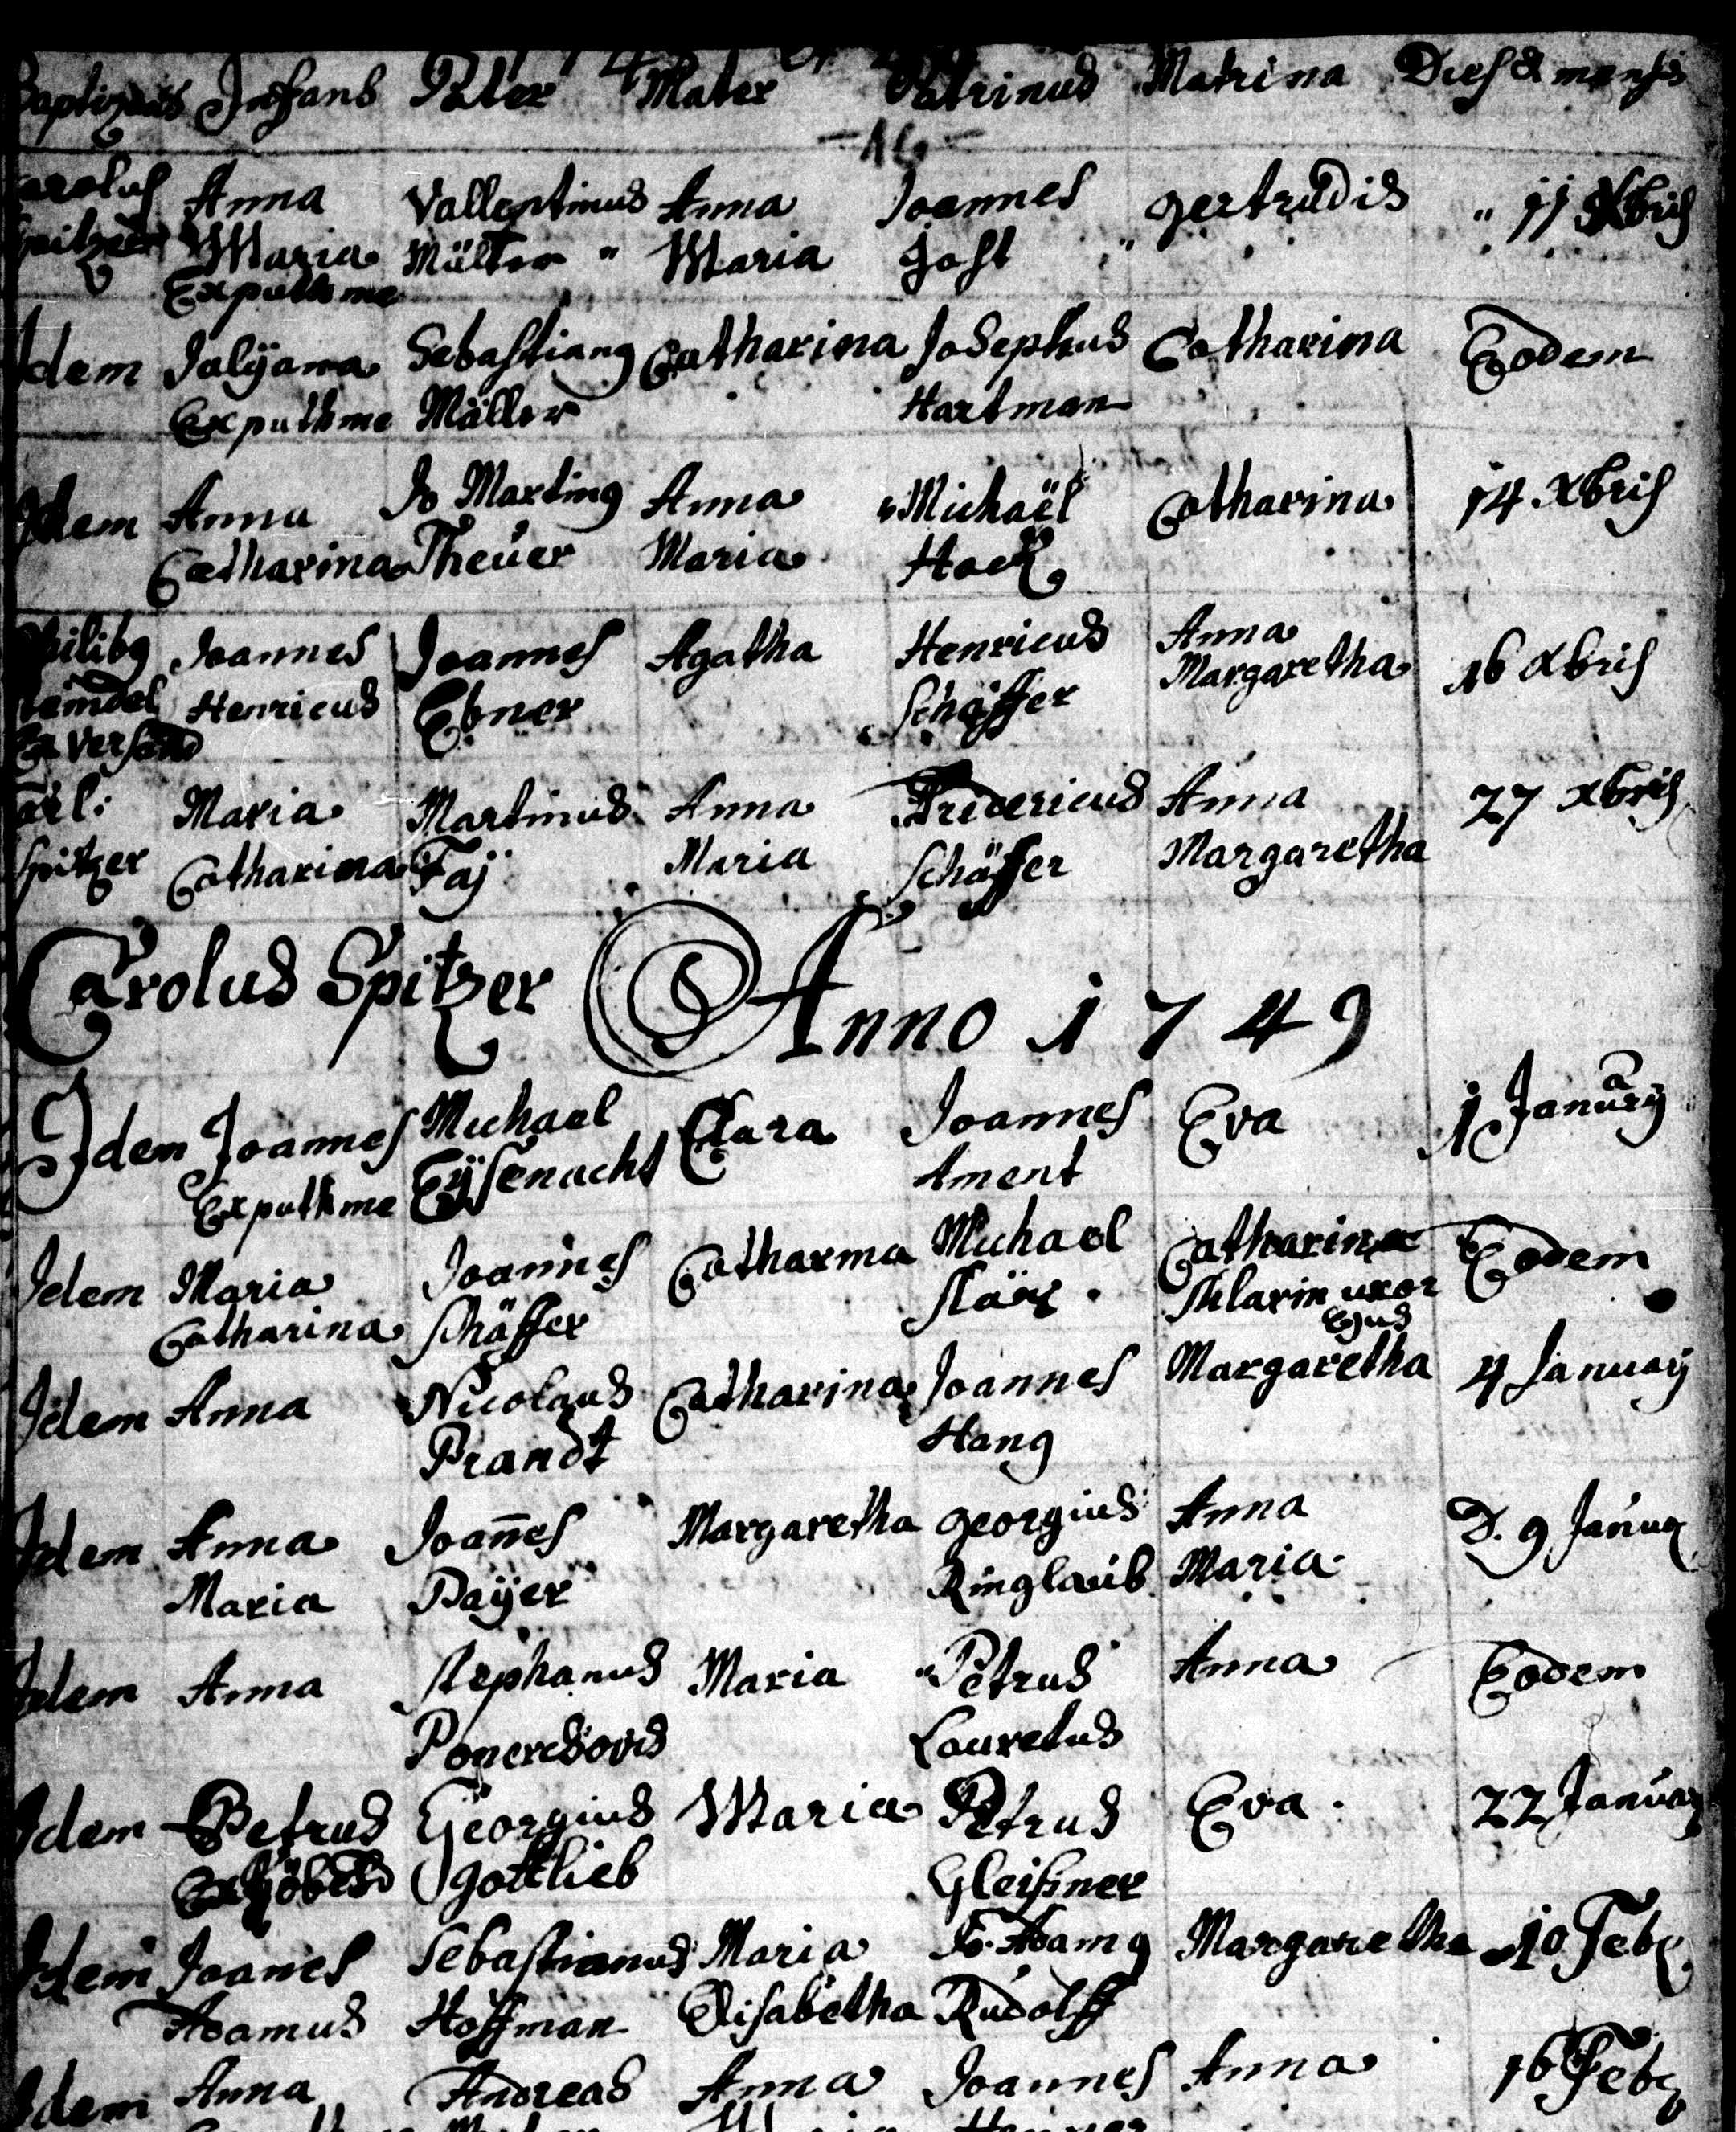 Infans Pater Mater Patrinus Matrina Dies & mensis
-16-
Anna Vallentinus Anna Joannes gertrudis " 11 Xbris
Maria Müller " Maria Jost "
Ex puthme
Idem Julÿana Sebastiang Catharina Josephus Catharina Eodem
Ex puthme Müller Hartman
Idem Anna Jo Marting Anna Michaël Catharina 14. Xbris
Catharina Theüer Maria Hock
Joannes Joannes Agatha Henricus Anna 16 Xbris
Henricus Ebner Schäffer Margaretha
Maria Martinus Anna Fridericus Anna 27 Xbris
Spitzer Catharina Faÿ Maria Schäffer Margaretha
Carolus Spitzer Anno 1749
Idem Joannes Michael Clara Joannes Eva 1 Januarÿ
Ex puthme Eÿsenacht Ament
Idem Maria Joannes Catharina Michael Catharina Eodem
Catharina Schäffer uxor
Ejus
Idem Anna Nicolaus Catharina Joannes Margaretha 4 Januarÿ
Prandt Hang
Idem Anna Joan̄es Margaretha georgius Anna D. 9 Janua
Maria Paÿer Ringlaub Maria
Idem Anna Stephanus Maria Petrus Anna Eodem
Lauretus
Idem Petrus Georgius Maria Petrus Eva 22 Januar
gottlieb Gleißner
Idem Joanes Sebastianus Maria Jo. Adamg Margaretha 10 Feb
Adamus Hoffman Elisabetha Rudolff
Idem Anna Andreas Anna Joannes Anna 16 Feb